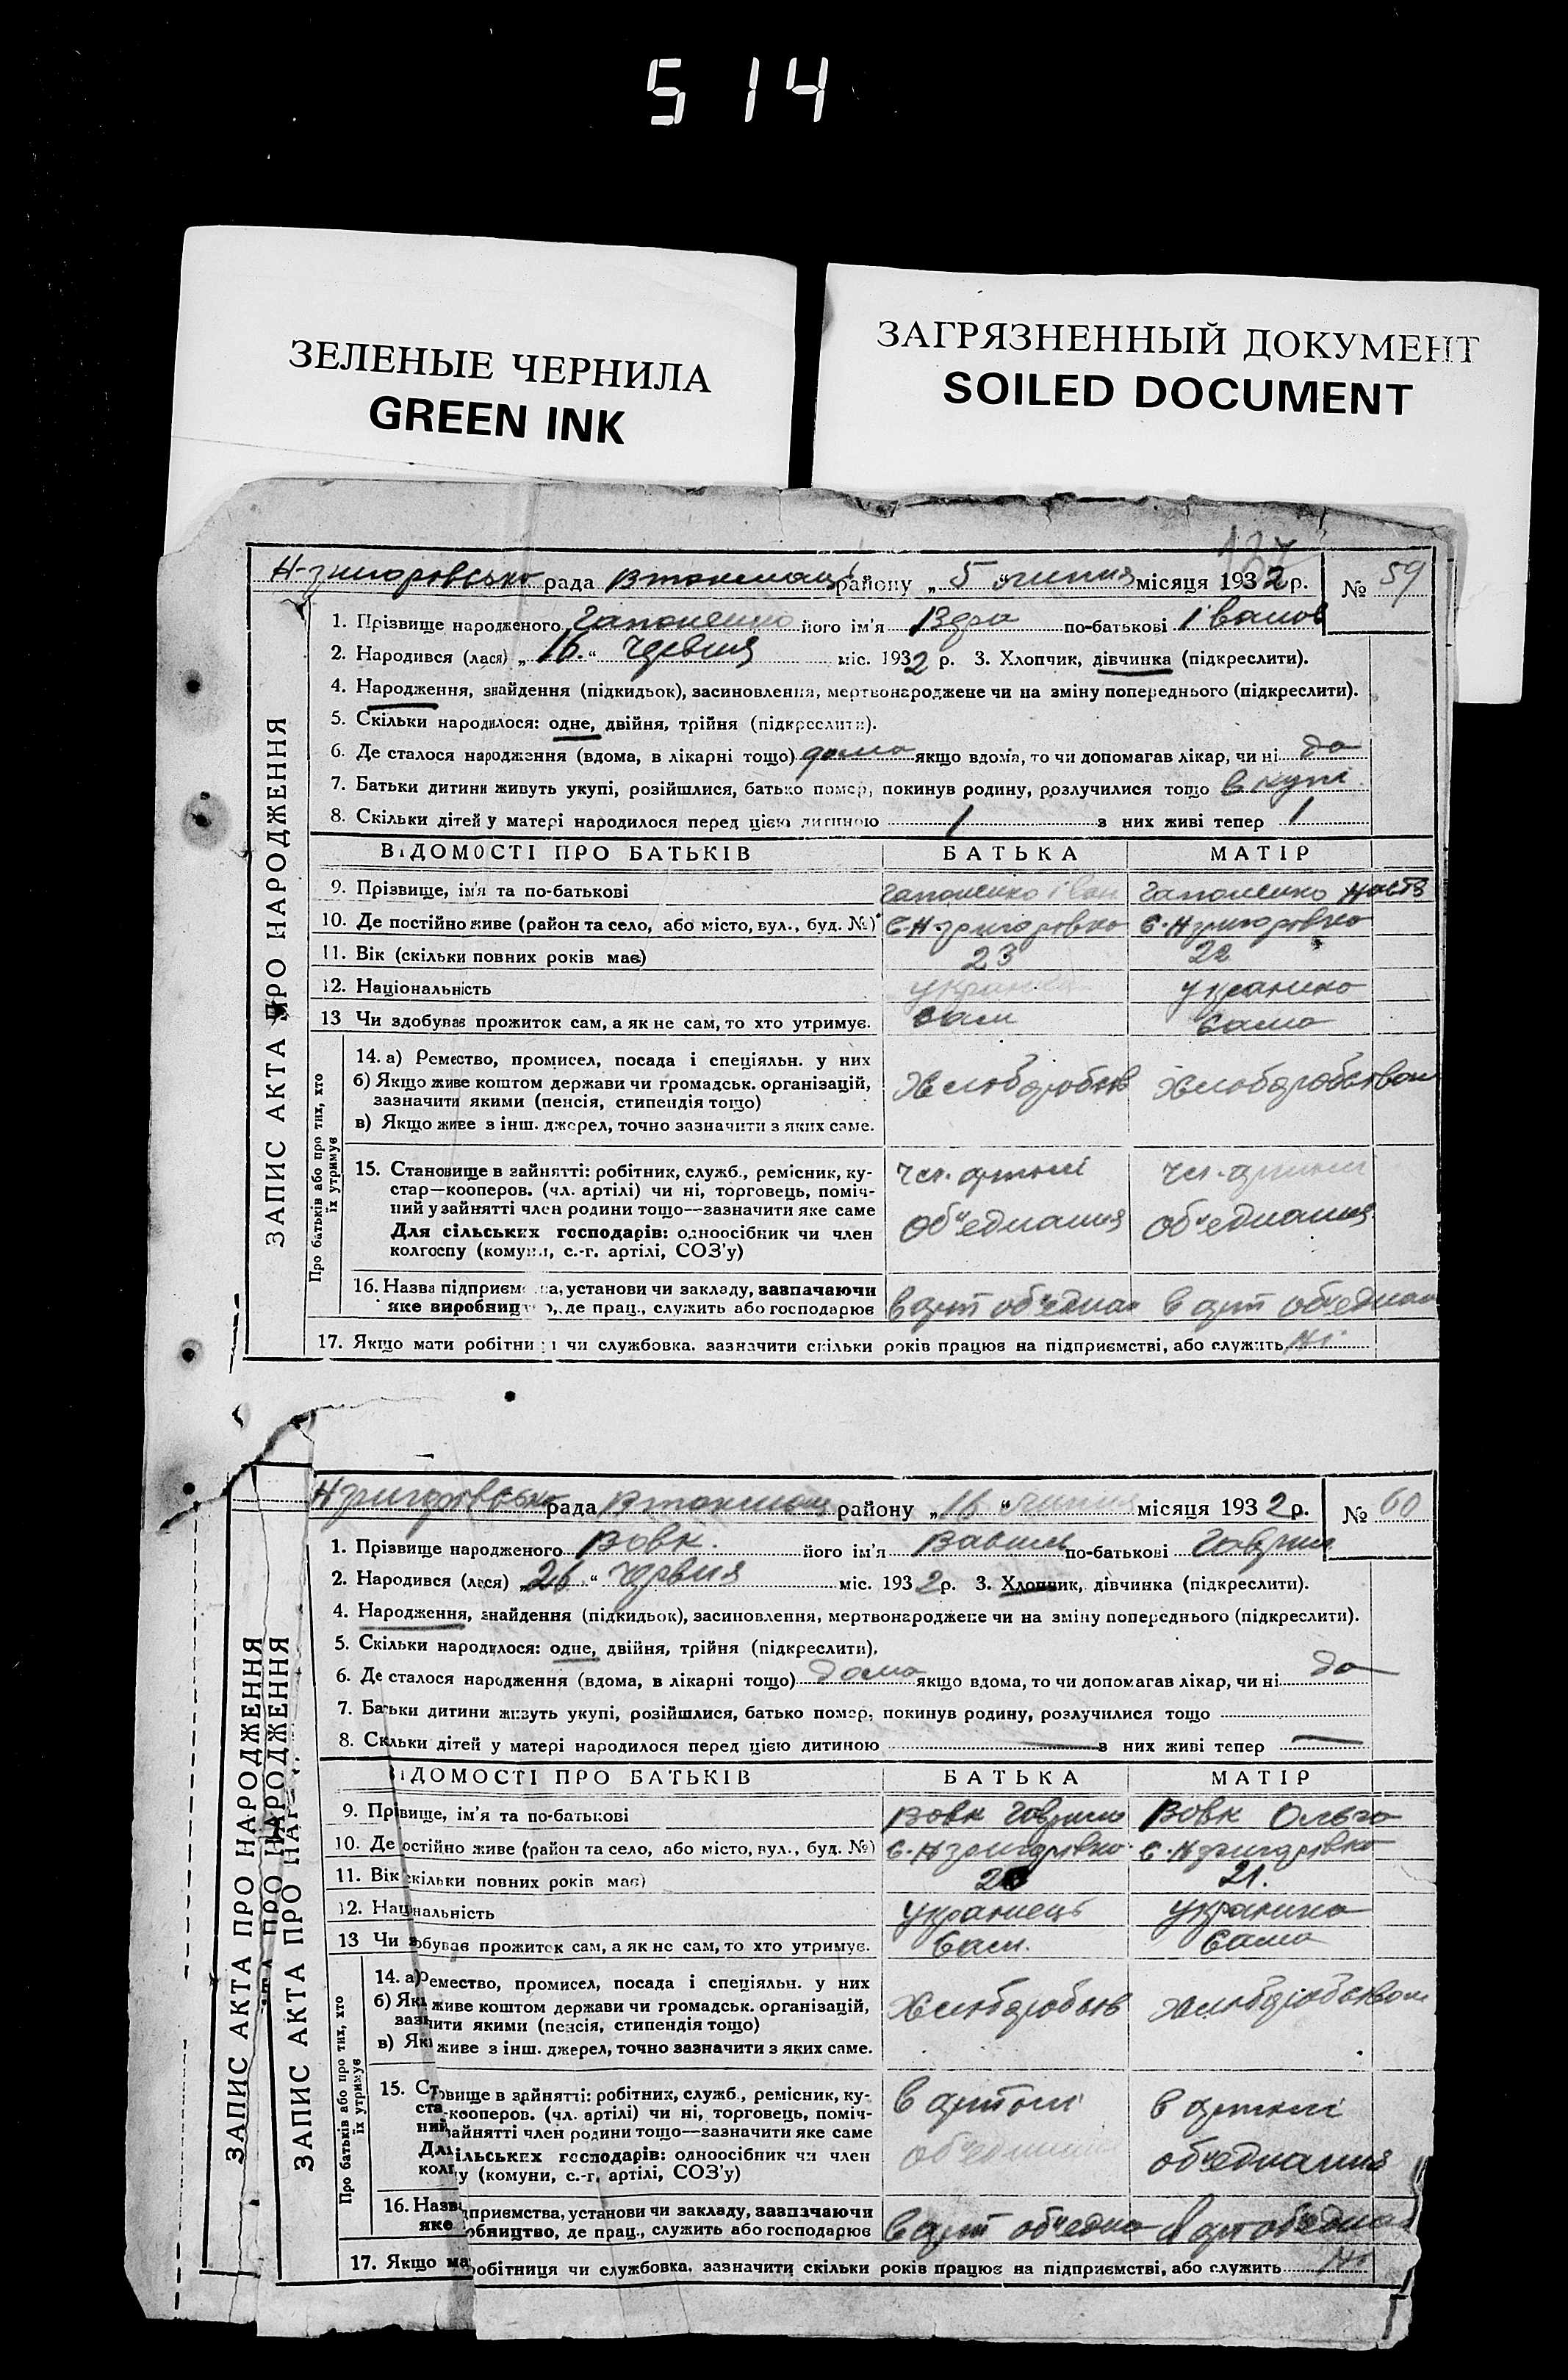 514
ЗЕЛЕНЫЕ ЧЕРНИЛА
GREEN INK
ЗАГРЯЗНЕННЫЙ ДОКУМЕНТ
SOILED DOCUMENT
137
Н-григоровсько рада Втокмаць району „ 5 “ липня місяця 1932 р. № 59
ЗАПИС АКТА ПРО НАРОДЖЕННЯ
1. Прізвище народженого Гапоненко його ім'я Віра по-батькові Іванов
2. Народився (лася) „ 16. “ Червня міс. 1932 р. 3. Хлопчик, дівчинка (підкреслити).
4. Народження, знайдення (підкидьок), засиновлення, мертвонароджене чи на зміну попереднього (підкреслити).
5. Скільки народилося: одне, двійня, трійня (підкреслити).
6. Де сталося народження (вдома, в лікарні тощо) дома якщо вдома, то чи допомагав лікар, чи ні да
7. Батьки дитини живуть укупі, розійшлися, батько помер, покинув родину, розлучилися тощо в купі
8. Скільки дітей у матері народилося перед цією дитиною 1 з них живі тепер 1
ВІДОМОСТІ ПРО БАТЬКІВ БАТЬКА МАТІР
9. Прізвище, ім'я та по-батькові Гапоненко Іван Гапоненко Настя
10. Де постійно живе (район та село, або місто, вул., буд. №) С-Н-григоровко С. Н григоровко
11. Вік (скільки повних років має) 23 22
12. Національність украинец украинко
13 Чи здобував прожиток сам, а як не сам, то хто утримує. Сам Само
Про батьків або про тих, хто їх утримує
14. а) Ремество, промисел, посада і спеціяльн. у них
б) Якщо живе коштом держави чи громадськ. організацій,
зазначити якими (пенсія, стипендія тощо)
в) Якщо живе з інш. джерел, точно зазначити з яких саме.
Хлюбдробств хлюбдробством
15. Становище в зайнятті: робітник, служб., ремісник, ку-
стар—кооперов. (чл. артілі) чи ні, торговець, поміч-
ний у зайнятті член родини тощо—зазначити яке саме
Для сільських господарів: одноосібник чи член
колгоспу (комуни, с.-г. артілі, СОЗ'у)
чл. артілі чл. артілі
об'еднання об'еднання
16. Назва підприємства, установи чи закладу, зазпачаючи
яке виробництво, де прац., служить або господарює
в арт об'еднан в арт об'еднан
17. Якщо мати робітниця чи службовка, зазначити скільки років працює на підприємстві, або служить Ні
Н григоровсько рада Втокмаць району „ 16 “ липня місяця 1932 р. № 60
ЗАПИС АКТА ПРО НАРОДЖЕННЯ
ЗАПИС АКТА ПРО НАРОДЖЕННЯ
1. Прізвище народженого Вовк. його ім'я Василь по-батькові Гаврил
2. Народився (лася) „ 26 “ Червня міс. 1932 р. 3. Хлопчик, дівчинка (підкреслити).
4. Народження, знайдення (підкидьок), засиновлення, мертвонароджене чи на зміну попереднього (підкреслити).
5. Скільки народилося: одне, двійня, трійня (підкреслити).
6. Де сталося народження (вдома, в лікарні тощо) дома якщо вдома, то чи допомагав лікар, чи ні да
7. Батьки дитини живуть укупі, розійшлися, батько помер, покинув родину, розлучилися тощо
8. Скільки дітей у матері народилося перед цією дитиною — з них живі тепер —
ІДОМОСТІ ПРО БАТЬКІВ БАТЬКА МАТІР
9. Прівище, ім'я та по-батькові Вовк Гаврило Вовк Ольго
10. Де остійно живе (район та село, або місто, вул., буд. №) С. Н григоровко С. Н григоровко
11. Вік кільки повних років має) 21.
12. Націнальність Украінець украинко
13 Чи обував прожиток сам, а як не сам, то хто утримує. Сам. Само
Про батьків або про тих, хто їх утримує
14. а) Ремество, промисел, посада і спеціяльн. у них
б) Як живе коштом держави чи громадськ. організацій,
зазначити якими (пенсія, стипендія тощо)
в) Як живе з інш. джерел, точно зазначити з яких саме.
Хлюбдробств хлюбдробством
15. Становище в зайнятті: робітник, служб., ремісник, ку-
ста-кооперов. (чл. артілі) чи ні, торговець, поміч-
ний зайнятті член родини тощо—зазначити яке саме
Для ільських господарів: одноосібник чи член
колгу (комуни, с.-г. артілі, СОЗ'у)
в артілі в артілі
об'еднання об'еднання
16. Назва дприємства, установи чи закладу, зазпачаючи
яке обництво, де прац., служить або господарює
в арт об'една в арт об'еднан
17. Якщо ма обітниця чи службовка, зазначити скільки років працює на підприємстві, або служить Ні